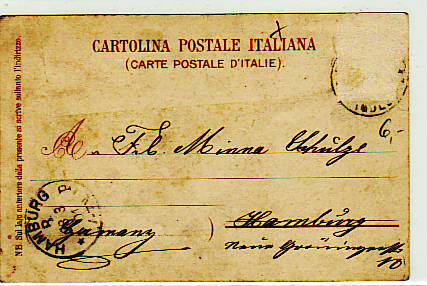 CARTOLINA POSTALE ITALIANA
(CARTE POSTALE D'ITALIE).
NB. Sul lato anteriore della presente si scrive soltanto l'indirizzo.
6,-
A. Frl. Minna Schulze
Hamburg
Germany)
Neue
10
HAMBURG